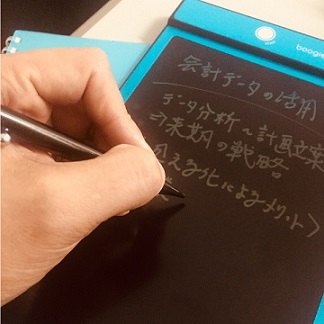 boogie
会計データの活用
データ分析〜計画立案
⇒来期の戦略
見える化によるメリット>